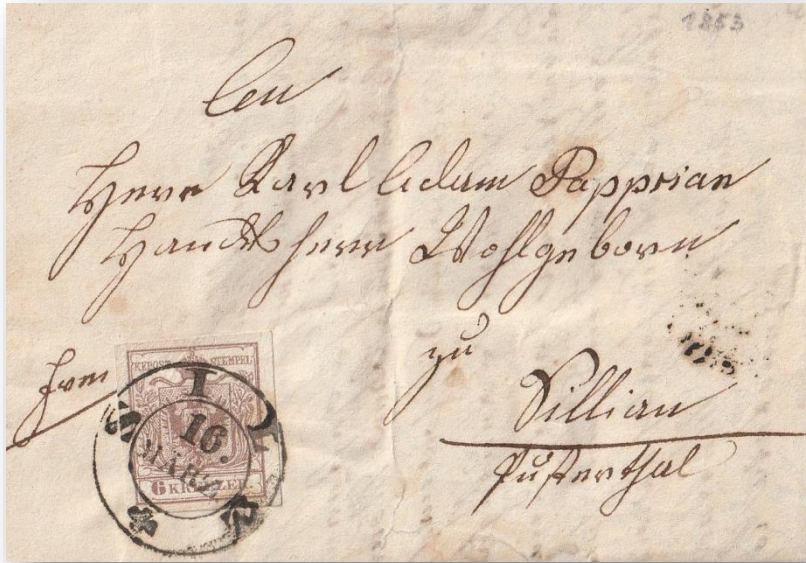 1853
An
Herr Karl Adam Papprian
Handelsherr Wohlgeborn
zu
Sillian
Pusterthal
KK POST-STEMPEL
SILZ
16.
MÄRZ
6 KREUZER.